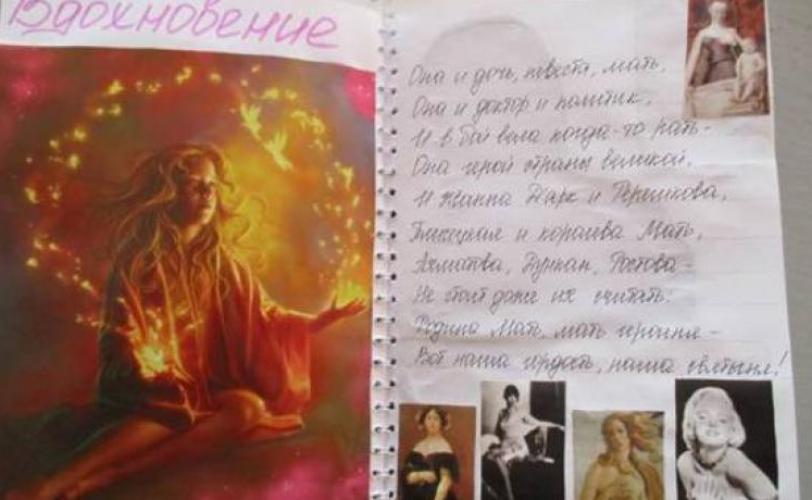 Вдохновение
Она и дочь, невеста, мать,
Она и доктор и политик,
И в бой вела когда-то рать -
Она герой страны великой.
И Жанна Дарк и Терешкова,
и королева Мать,
Ахматова, Дункан, Ростова -
Не стоит даже их считать!
Родина Мать, мать героиня -
Вот наша гордость, наша святыня!